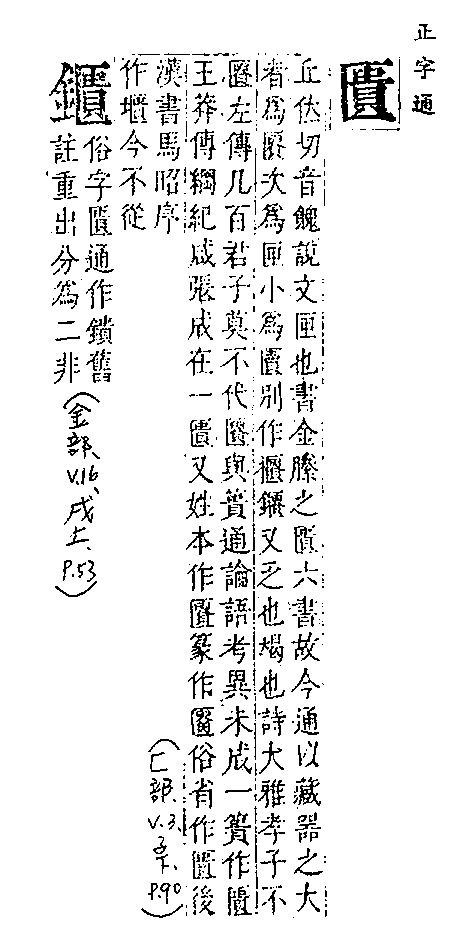 正字通
匱
丘位切音餽說文匣也書金縢之匱六書故今通以藏器之大
者為匱次為匣小為匵別作櫃鑎又乏也竭也詩大雅孝子不
匱左傳凡百君子莫不代匱與簣通論語考異未成一簣作匱
王莽傳綱紀咸張成在一匱又姓本作匱篆作匱俗省作匱後
漢書馬昭序
作壝今不從
(匚部、V.3、子下、P.90)
鑎
俗字匱通作鑎舊
註重出分為二非
(金部、V.16、戌上、P.53)